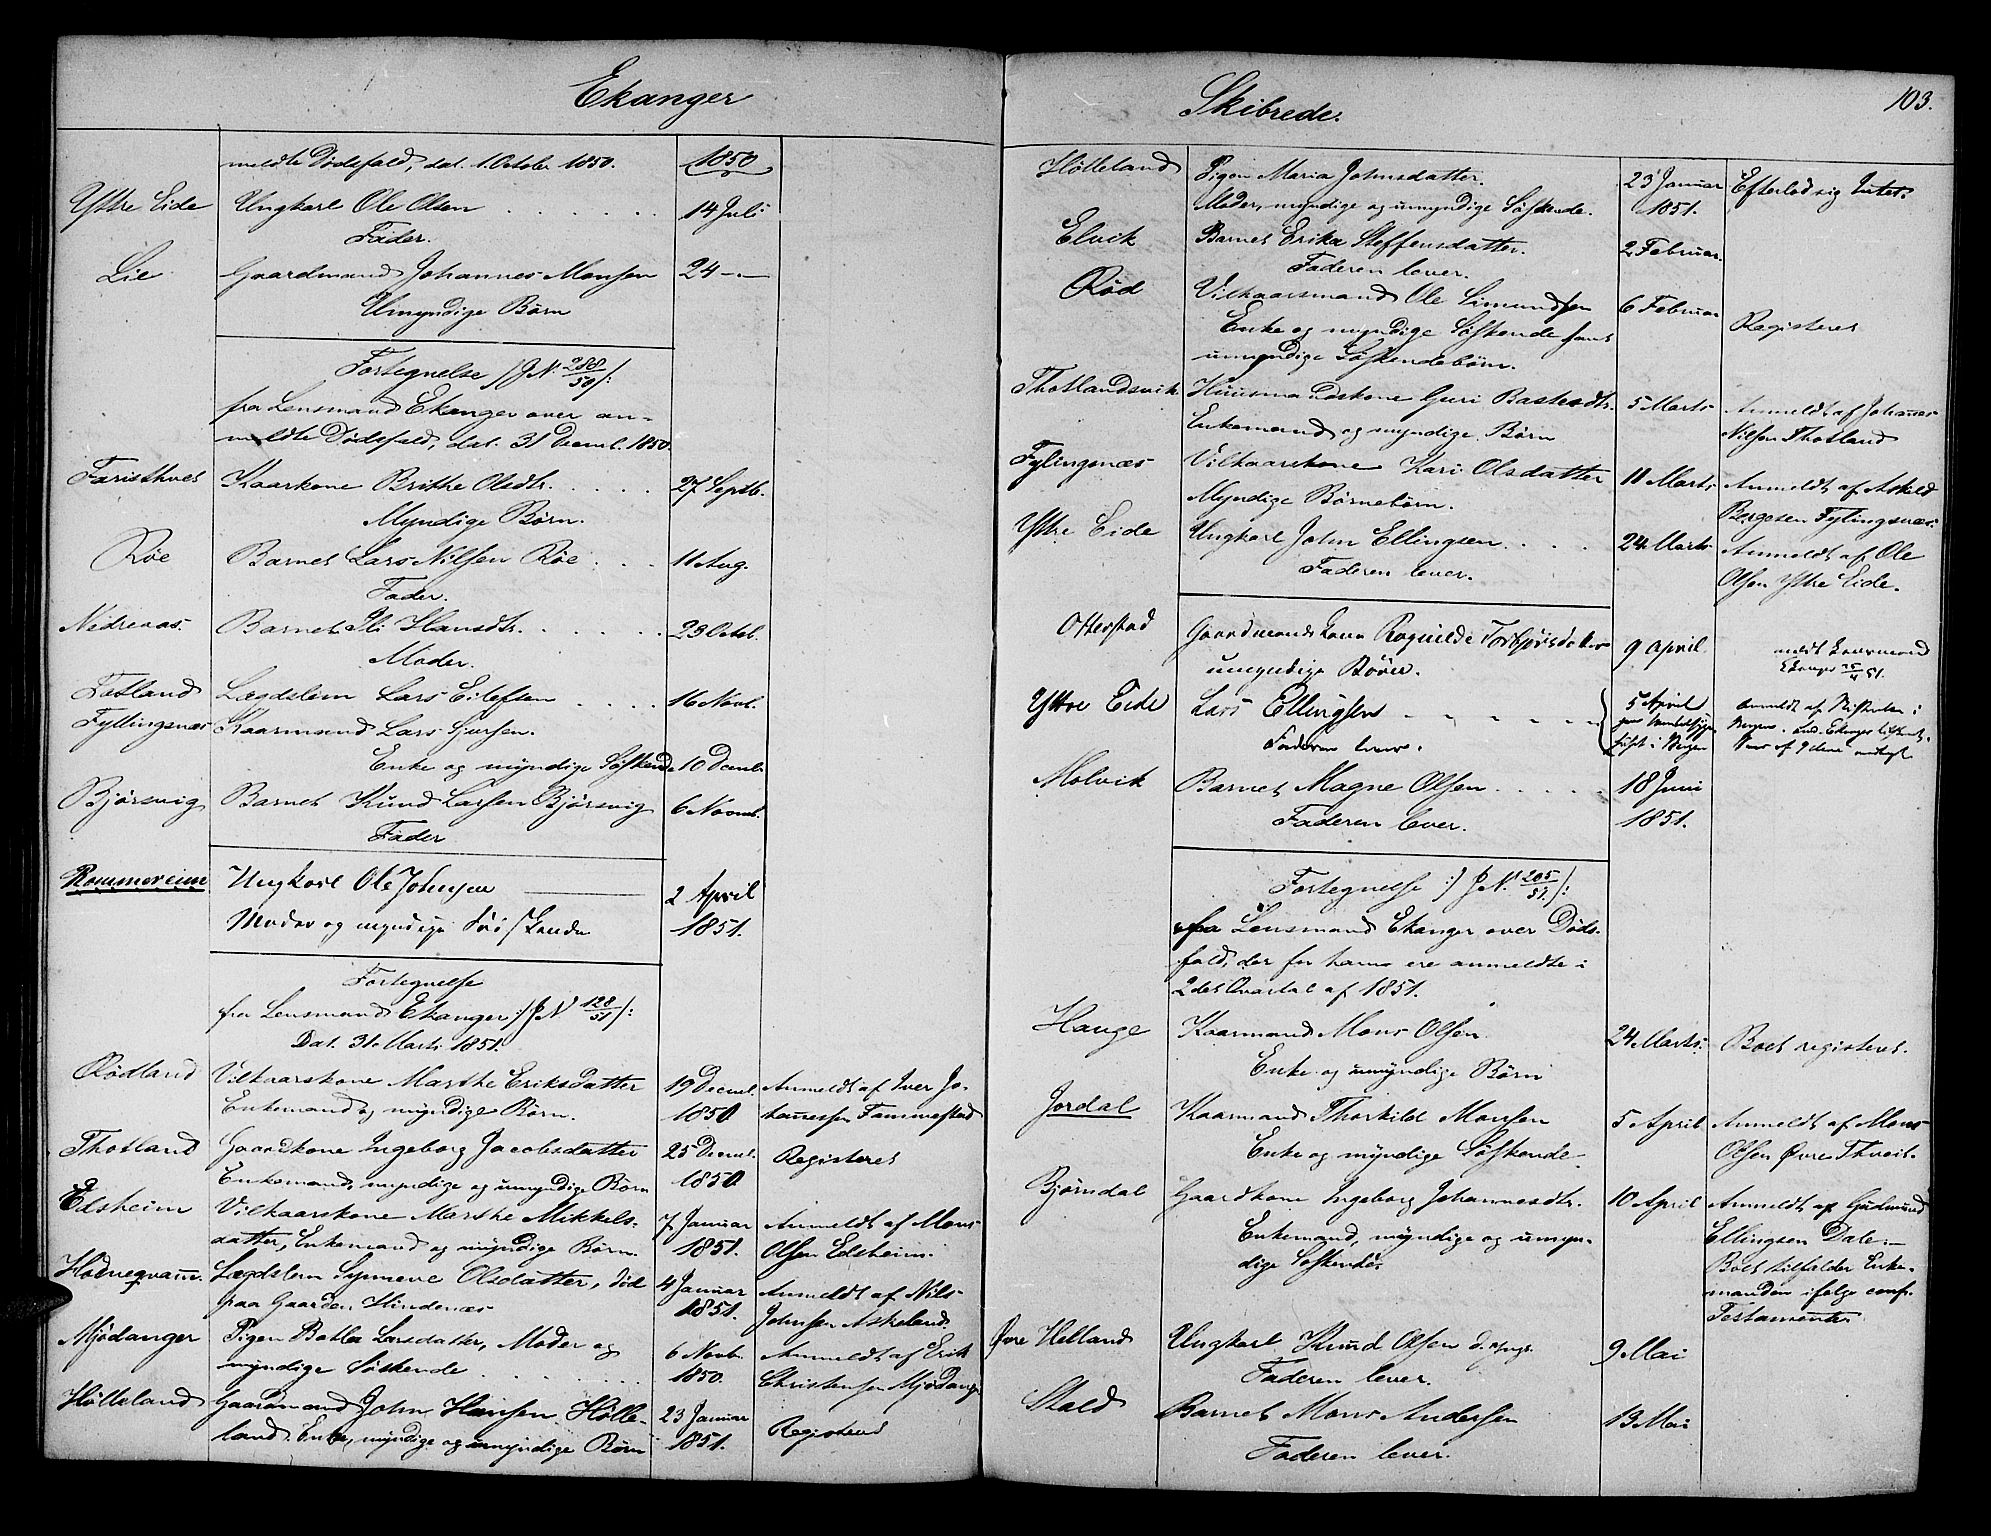 Ekanger
meldte Dødsfald, dat. 1. Octobr 1850.
1850
Yttre Eide Ungkarl Ole Olsen 14 Juli
Fader.
Lie Gaardmand Johannes Monsen 24 -
Umyndige Børn
Fortegnelse /: J. N. 288/50 :/
fra Lensmand Ekanger over an-
meldte Dødsfald, dat. 31 Decembr. 1850.
Faristhvet Kaarkone Brithe Olsdtr. 27 Septbr.
Myndige Børn.
Røe Barnet Lars Nilsen Røe 11 Aug.
Fader.
Nedrevaas. Barnet Hansdtr. 23 Octbr.
Moder.
Totland Lægdslem Lars Eilefsen 16 Novbr.
Fyllingsnæs Kaarmand Lars Sjursen.
Enke og myndige Søskende 10 Decembr.
Bjørsvig Barnet Knud Larsen Bjørsvig 6 Novmbr.
Fader
Rommereim Ungkarl Ole Johnsen 2 April
Moder og myndige Søskende 1851.
Fortegnelse
fra Lensmand Ekanger /: J N 128/51 :/
Dat. 31 Marts 1851.
Rødland Vilkaarskone Marthe Eriksdatter 19 Decmbr. Anmeldt af Iver Jo-
Enkemand og myndige Børn. 1850 hannessen Fammestad
Thotland Gaardkone Ingeborg Jacobsdatter 25 Decmbr. Registeret
Enkemand, myndige og umyndige Børn 1850
Edsheim Vilkaarskone Marthe Mikkels- 7 Januar Anmeldt af Mons
datter, Enkemand og myndige Børn. 1851. Olsen Edsheim.
Hodneqvam. Lægdslem Synneve Olsdatter, død 4 Januar Anmeldt af Nils
paa Gaarden Hindenæs 1851. Johnsen Askeland.
Mjødanger Pigen Larsdatter, Moder og 6 Novbr. Anmeldt af Erik
myndige Søskende 1850. Christensen Mjødanger
Hølleland Gaardmand John Hansen Hølle- 23 Januar Registeret
land. Enke, myndige og umyndige Børn 1851.
Skibrede.
103.
Hølleland Pigen Maria Johnsdatter. 23 Januar Efterlod sig Intet.
Moder, myndige og umyndige Søskende. 1851.
Elvik Barnet Erika Steffensdatter. 2 Februar.
Faderen lever.
Rød Vilkaarsmand Ole Simundsen 6 Februar Registeret
Enke og myndige Søskende samt
umyndige Søskendebørn.
Thotlandsvik Huusmandskone Guri Bastesdtr. 5 Marts Anmeldt af Johannes
Enkemand og myndige Børn Nilsen Thotland
Fylingsnæs Vilkaarskone Kari Olsdatter 11 Marts Anmeldt af Askild
Myndige Børnebørn. Børgesen Fylingsnæs.
Yttre Eide Ungkarl John Ellingsen 24 Marts Anmeldt af Ole
Faderen lever. Olsen Yttre Eide.
Otterstad Gaardmandskone Ragnilde Torbjørnsdatter 9 April meldt Lensmand
umyndige Børn. Ekanger 25/4 51.
Yttre Eide Lars Ellingsen 5 April anmeldt af
Faderen lever. i Bergen
Molvik Barnet Magne Olsen 18 Juni
Faderen lever. 1851.
Fortegnelse /: J N. 205/51. :/
fra Lensmand Ekanger over Døds-
fald, der for ham ere anmeldte i
2det Qvartal af 1851.
Hauge Kaarmand Mons Olsen. 24 Marts. Boet registeret.
Enke og umyndige Børn
Jordal Kaarmand Thorkild Monsen 5 April Anmeldt af Mons
Enke og myndige Søskende Olsen Øvre Thveit.
Bjørndal Gaardkone Ingeborg Johannesdtr. 10 April Anmeldt af Gudmund
Enkemand, myndige og umyn- Ellingsen Dale.
dige Søskende. Boet tilfalder Enke-
manden ifølge conf.
Testamente
Øvre Helland Ungkarl Knud Olsen d. yngr. 9 Mai
Faderen lever.
Stald Barnet Mons Andersen 13 Mai
Faderen lever.